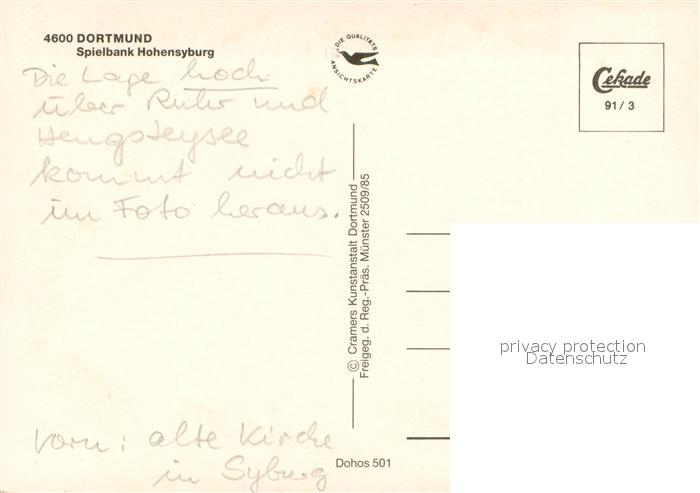 4600 DORTMUND
Spielbank Hohensyburg
DIE QUALITÄTS
ANSICHTSKARTE
Cekade
91/3
Die Lage hoch
über Ruhr und
Hengsteysee
kommt nicht
im Foto heraus.
© Cramers Kunstanstalt Dortmund
Freigeg. d. Reg.-Präs. Münster 2509/85
privacy protection
Datenschutz
vorn: alte Kirche
in Syburg
Dohos 501